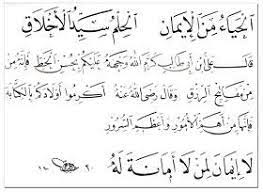 الحياء من الإيمان الحلم سيد الأخلاق
قال علي بن أبي طالب كرم الله وجهه عليكم بحسن الخط فإنه
من مفاتيح الرزق وقال رضي الله عنه أكرموا أولادكم بالكتابة
فإنها من أهم الأمور وأعظم السرور
لا إيمان لمن لا أمانة له